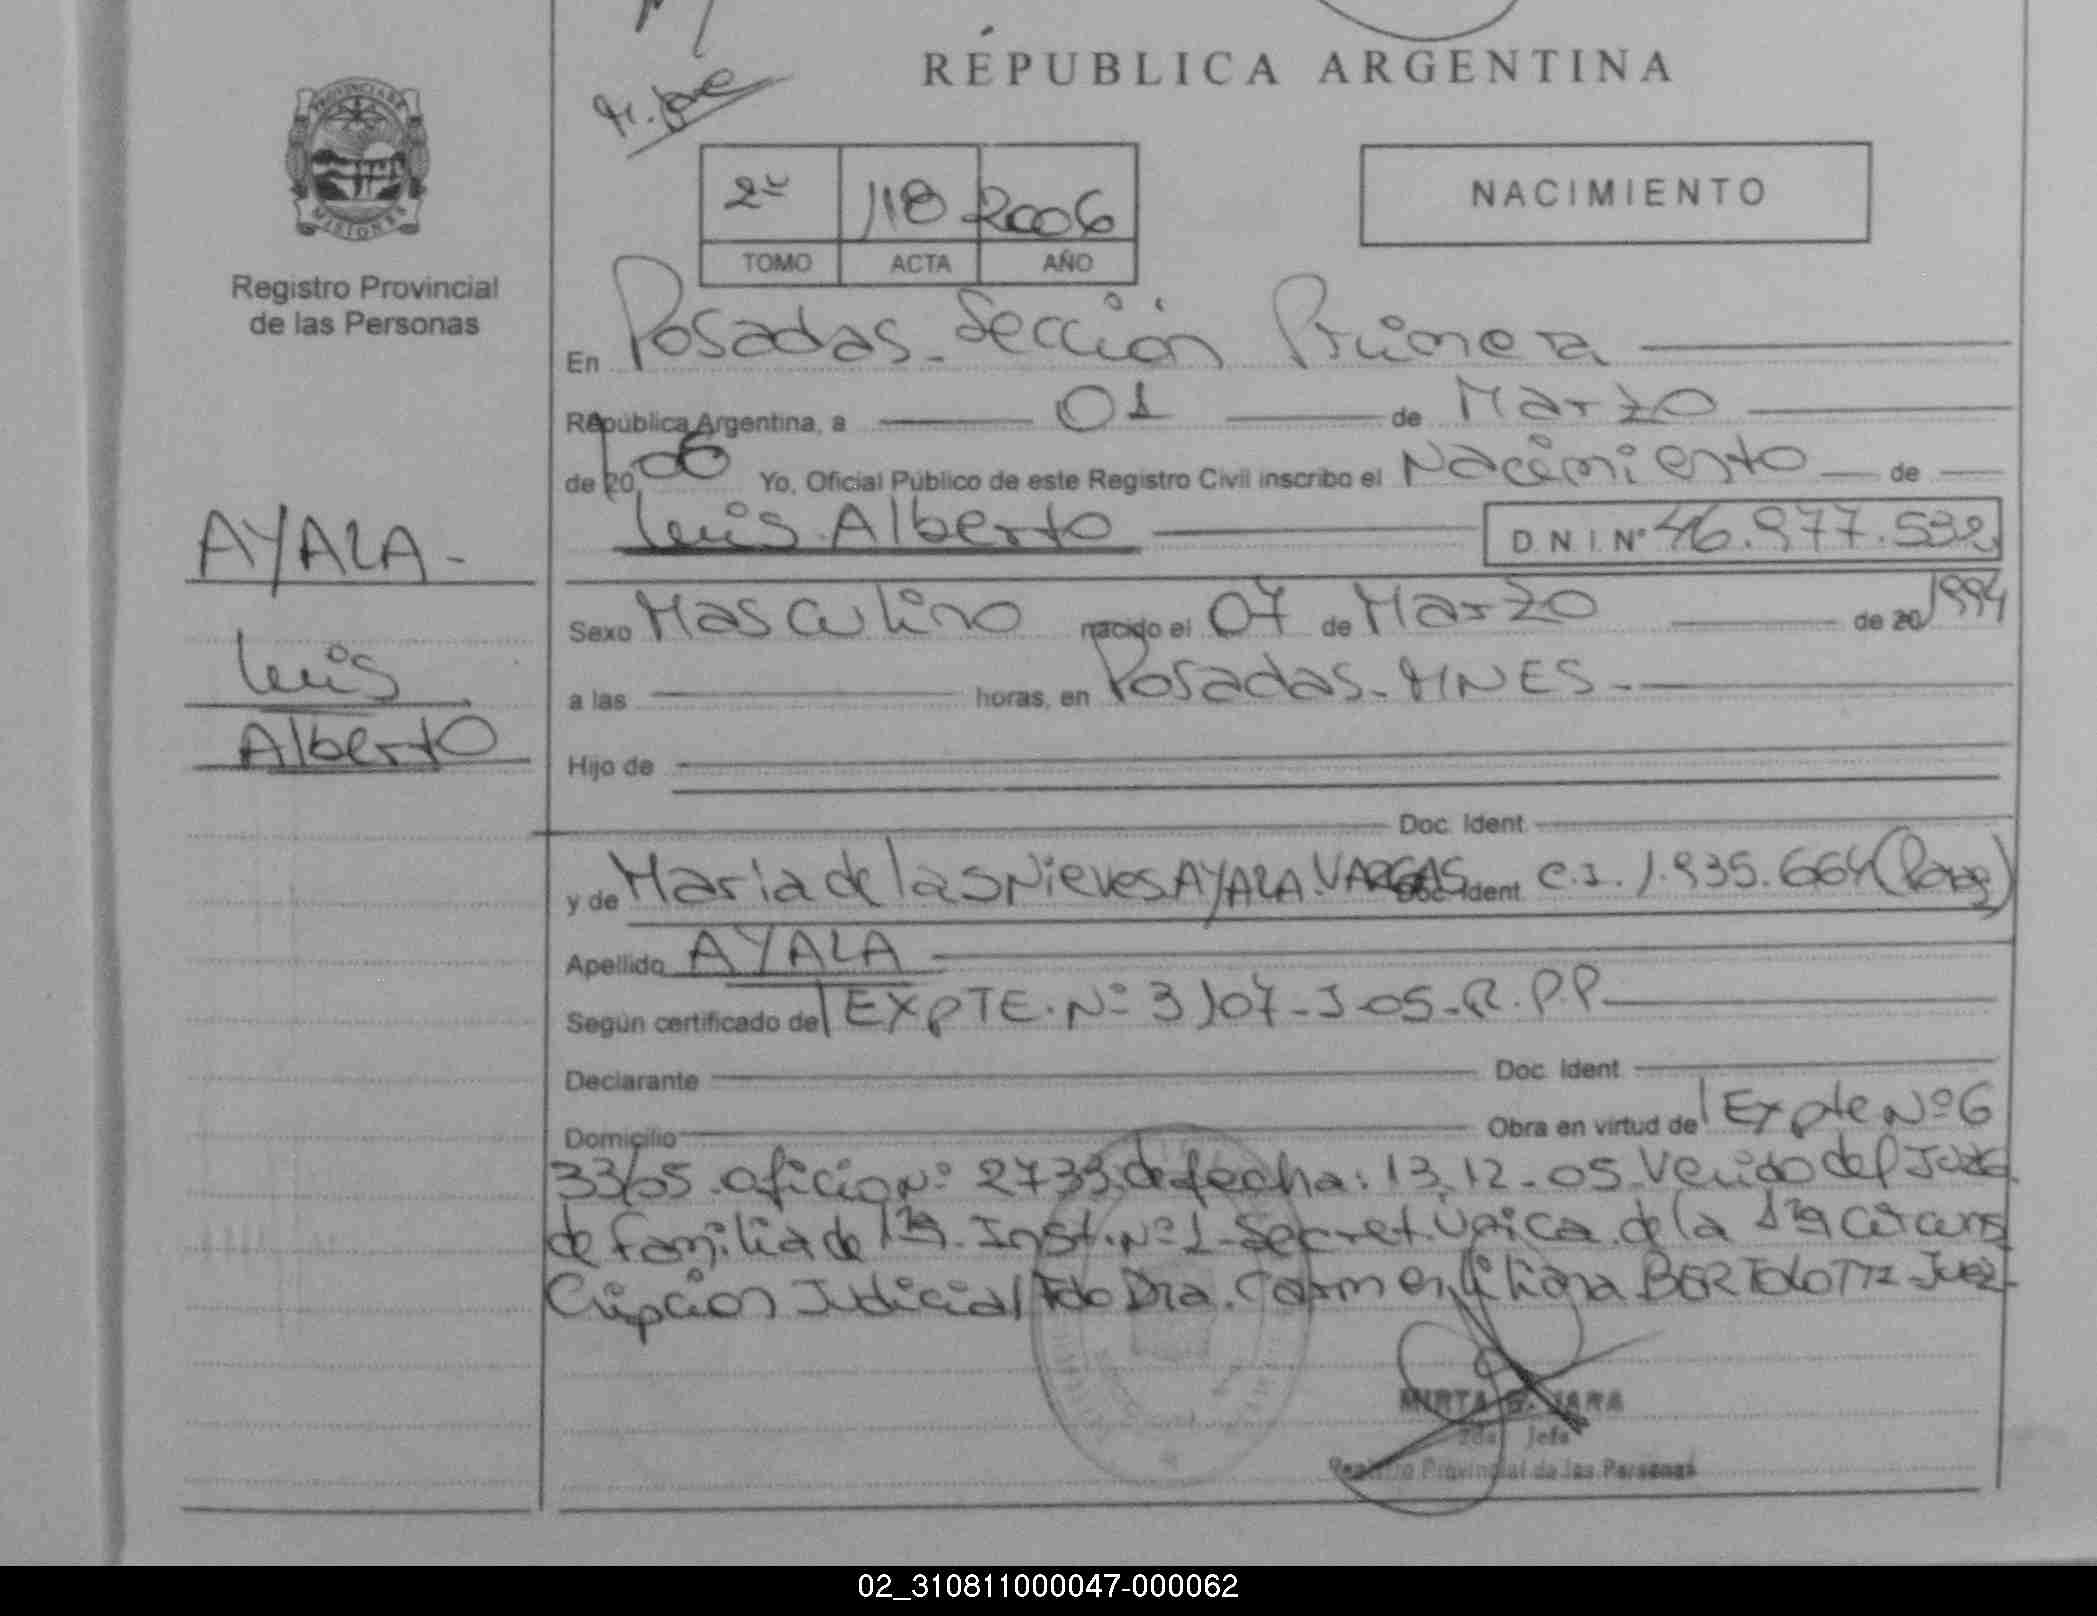 RÉPUBLICA ARGENTINA
PROVINCIA DE
MISIONES
Registro Provincial
de las Personas
2º 118 2006
TOMO ACTA AÑO
NACIMIENTO
En Posadas - Sección Primera
República Argentina, a 01 de Marzo
de 20 06 Yo, Oficial Público de este Registro Civil inscribo el Nacimiento de
Luis Alberto D N I N° 46.977.532
AYALA -
Luis
Alberto
Sexo Masculino nacido el 07 de Marzo de 20 1994
a las horas, en Posadas - MNES -
Hijo de
Doc. Ident
y de Maria de las Nieves AYALA VARGAS Doc. Ident C.I. 1.935.664 (Parag)
Apellido AYALA
Según certificado de EXPTE. Nº 3107 - J - 05 - R.P.P
Declarante Doc. Ident
Domicilio Obra en virtud de Expte Nº 6
33/05. oficio Nº 2733 de fecha: 13.12-05 Venido del Juzg.
de familia de 1ra. Inst. Nº 1 - Secret. Única de la 1ra Circuns
Cripcion Judicial Fdo Dra. Carmen Liliana BERTOLOTTI - Juez -
MIRTA JARA
2da Jefa
Registro Provincial de las Personas
02_310811000047-000062